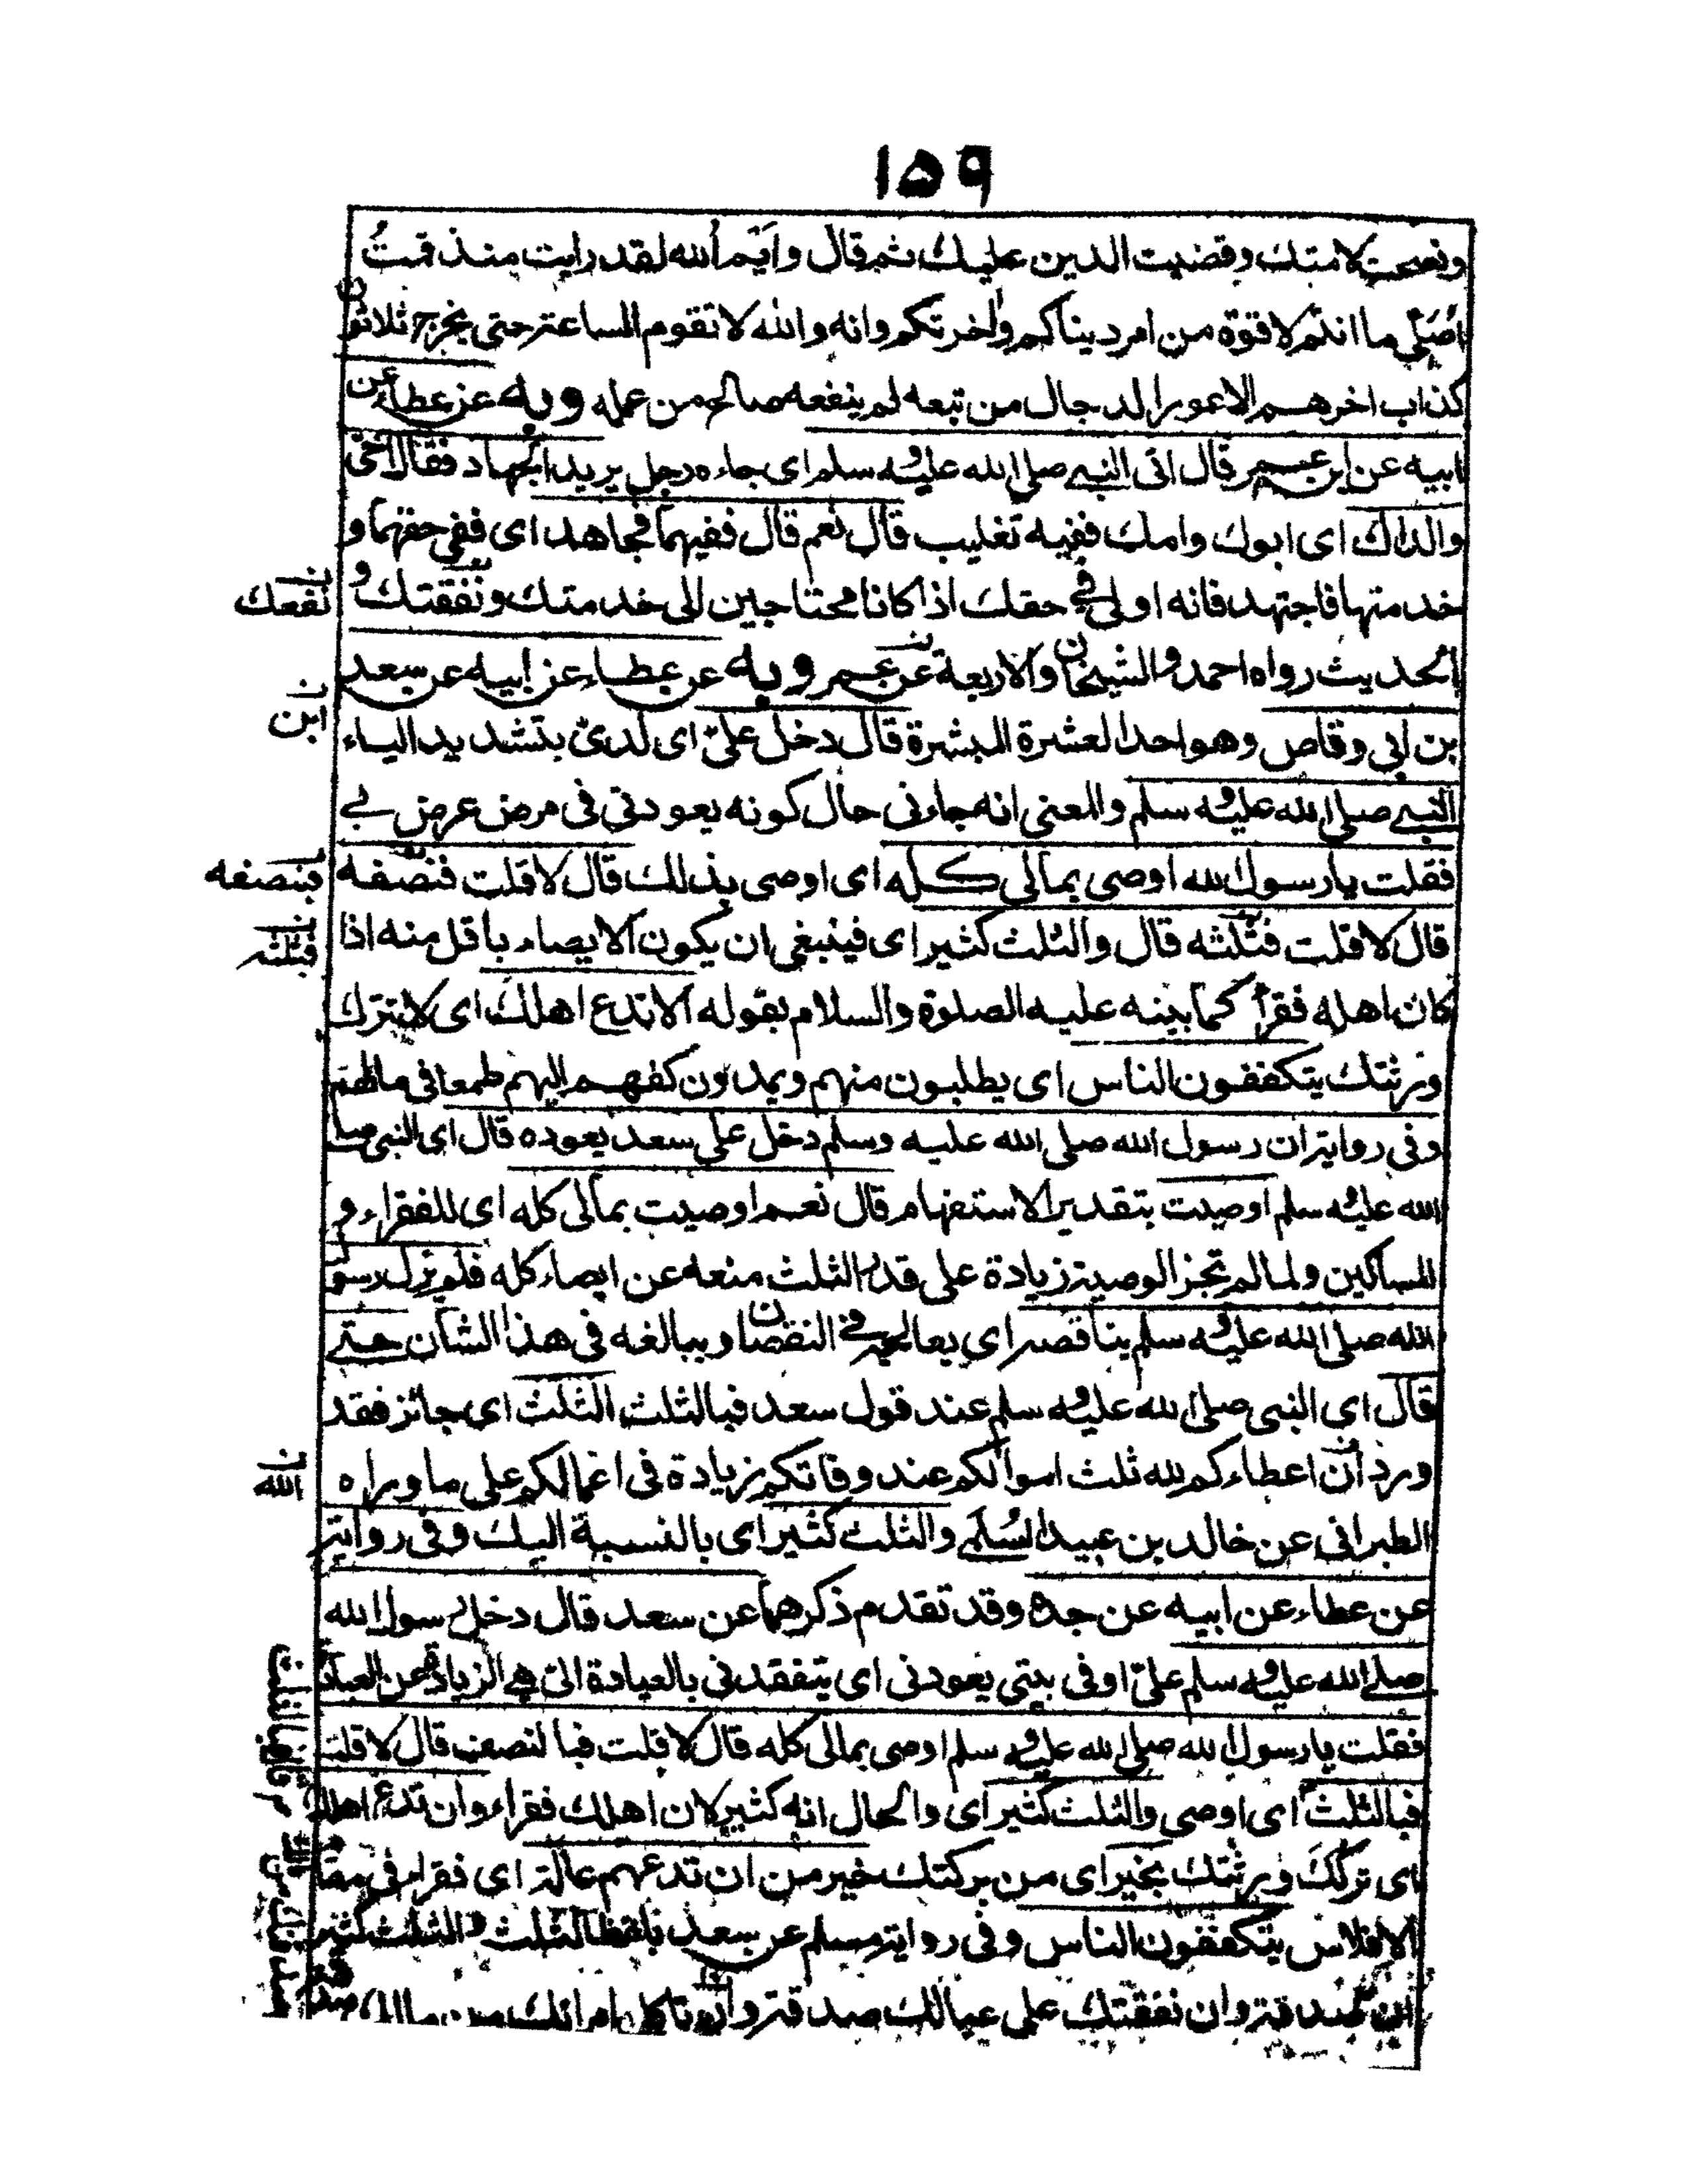 ١٥٩
ونصحت لامتك وقضيت الدين عليك ثم قال وأيم الله لقد رايت منذ قمتُ
اُصَلّي ما انتم لاقوه من امر ديناكم واخرتكم وانه والله لا تقوم الساعة حتى يخرج ثلاثون
كذاب اخرهم الاعور الدجال من تبعه لم ينفعه صالح من عمله وبه عن عطاء عن
ابيه عن ابن عمر قال اتى النبي صلى الله عليه وسلم اى جاءه رجل يريد الجهاد فقال احَىّ
والداك اى ابوك وامك ففيه تغليب قال نعم قال ففيهما فجاهد اى ففى حقهما و
خدمتهما فاجتهد فانه اولى في حقك اذا كانا محتاجين الى خدمتك ونفقتك و
نفعك
الحديث رواه احمد والشيخان والاربعة عن عمر وبه عن عطاء عن ابيه عن سعد
ابن
بن ابي وقاص وهو احد العشرة المبشرة قال دخل علىّ اى لدىّ بتشديد الياء
النبي صلى الله عليه وسلم والمعنى انه جاءنى حال كونه يعودنى فى مرض عرض بي
فقلت يا رسول الله اوصى بمالى كله اى اوصى بذلك قال لا قلت فنصفه
فبنصفه
قال لا قلت فثلثه قال والثلث كثير اى فينبغى ان يكون الايصاء باقل منه اذا
فبثلثه
كان اهله فقرأ كما بينه عليه الصلوة والسلام بقوله الا تدع اهلك اى لا تترك
ورثتك يتكففون الناس اى يطلبون منهم ويمدون كفهم اليهم طمعا فى مالهم
وفى رواية ان رسول الله صلى الله عليه وسلم دخل على سعد يعوده قال اى النبى صلى
الله عليه وسلم اوصيت بتقدير الاستفهام قال نعم اوصيت بمالى كله اى للفقراء و
المساكين ولما لم تجز الوصية زيادة على قدر الثلث منعه عن ايصاء كله فلم يزل رسول
الله صلى الله عليه وسلم يناقصه اى يعالجه في النقصان ويبالغه فى هذا الشان حتى
قال اى النبى صلى الله عليه وسلم عند قول سعد فبالثلث الثلث اى جائز فقد
ورد ان اعطاءكم لله ثلث اموالكم عند وفاتكم زيادة فى اعمالكم على ما وراه
الله
الطبرانى عن خالد بن عبيد السُلَمي والثلث كثير اى بالنسبة اليك وفى رواية
عن عطاء عن ابيه عن جده وقد تقدم ذكرهما عن سعد قال دخل رسول الله
صلى الله عليه وسلم علىّ اوفى بيتى يعودنى اى يتفقدنى بالعيادة التى هي الزيادة عن العبادة
فقلت يا رسول الله صلى الله عليه وسلم اوصى بمالى كله قال لا قلت فبالنصف قال لا قلت
فبالثلث اى اوصى والثلث كثير اى والحال انه كثير لان اهلك فقراء وان تدع اهلك
اى تركك ورثتك بخير اى من بركتك خير من ان تدعهم عالة اى فقراء فى مقام
الافلاس يتكففون الناس وفى رواية مسلم عن سعد بلفظ الثلث والثلث كثير
ان صدقة وان نفقتك على عيالك صدقة وان تاكل امرأتك من مالك صدقة